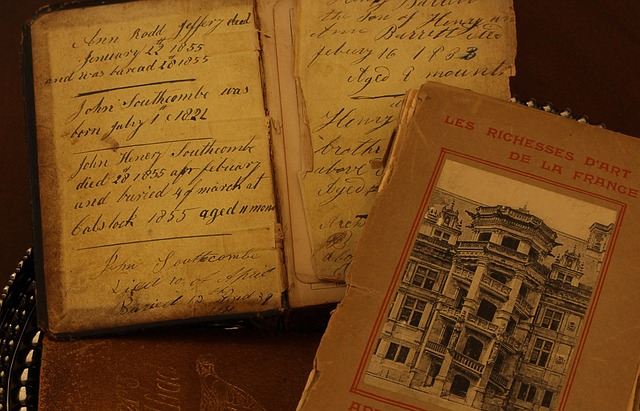 Ann Rodd Jeffery died
January 22th 1855
and was buried 28 1855
John Southcombe was
born July 1st 1822
John Henery Southcombe
died 28 1855 febuary
and buried 4 of march at
Calstock 1855 aged 11 mon
John Southcombe
Died 10 of
Buried 12
the Son of Henry
Ann Barrett
febuary 16 1883
Aged 9 mounth
Henry
brothe
above
Aged
LES RICHESSES D'ART
DE LA FRANCE